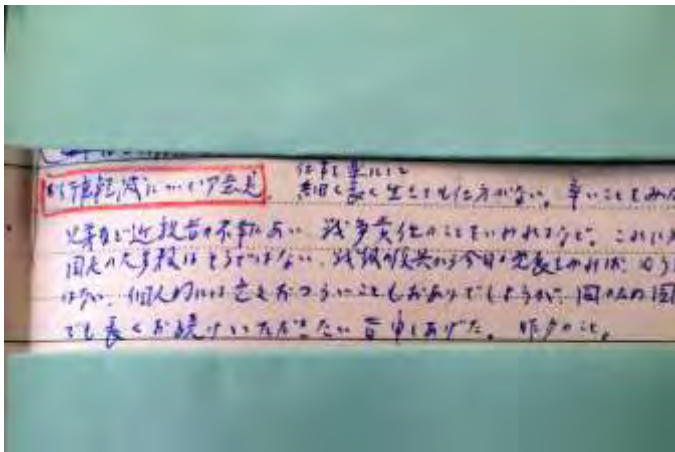 お行事軽減について御意見
仕事を楽にして
細く長く生きても仕方がない。辛いことをみた
兄弟など近親者の不幸にあい 戦争責任のことをいわれるなど。これに
国民の大多数はそうではない。戦後の復興から今日の発展をみれば、
はない。個人的には おつらいこともおありでしょうが、国のため国
ても長くお続けいただきたい旨申しあげた。昨夕のこと。